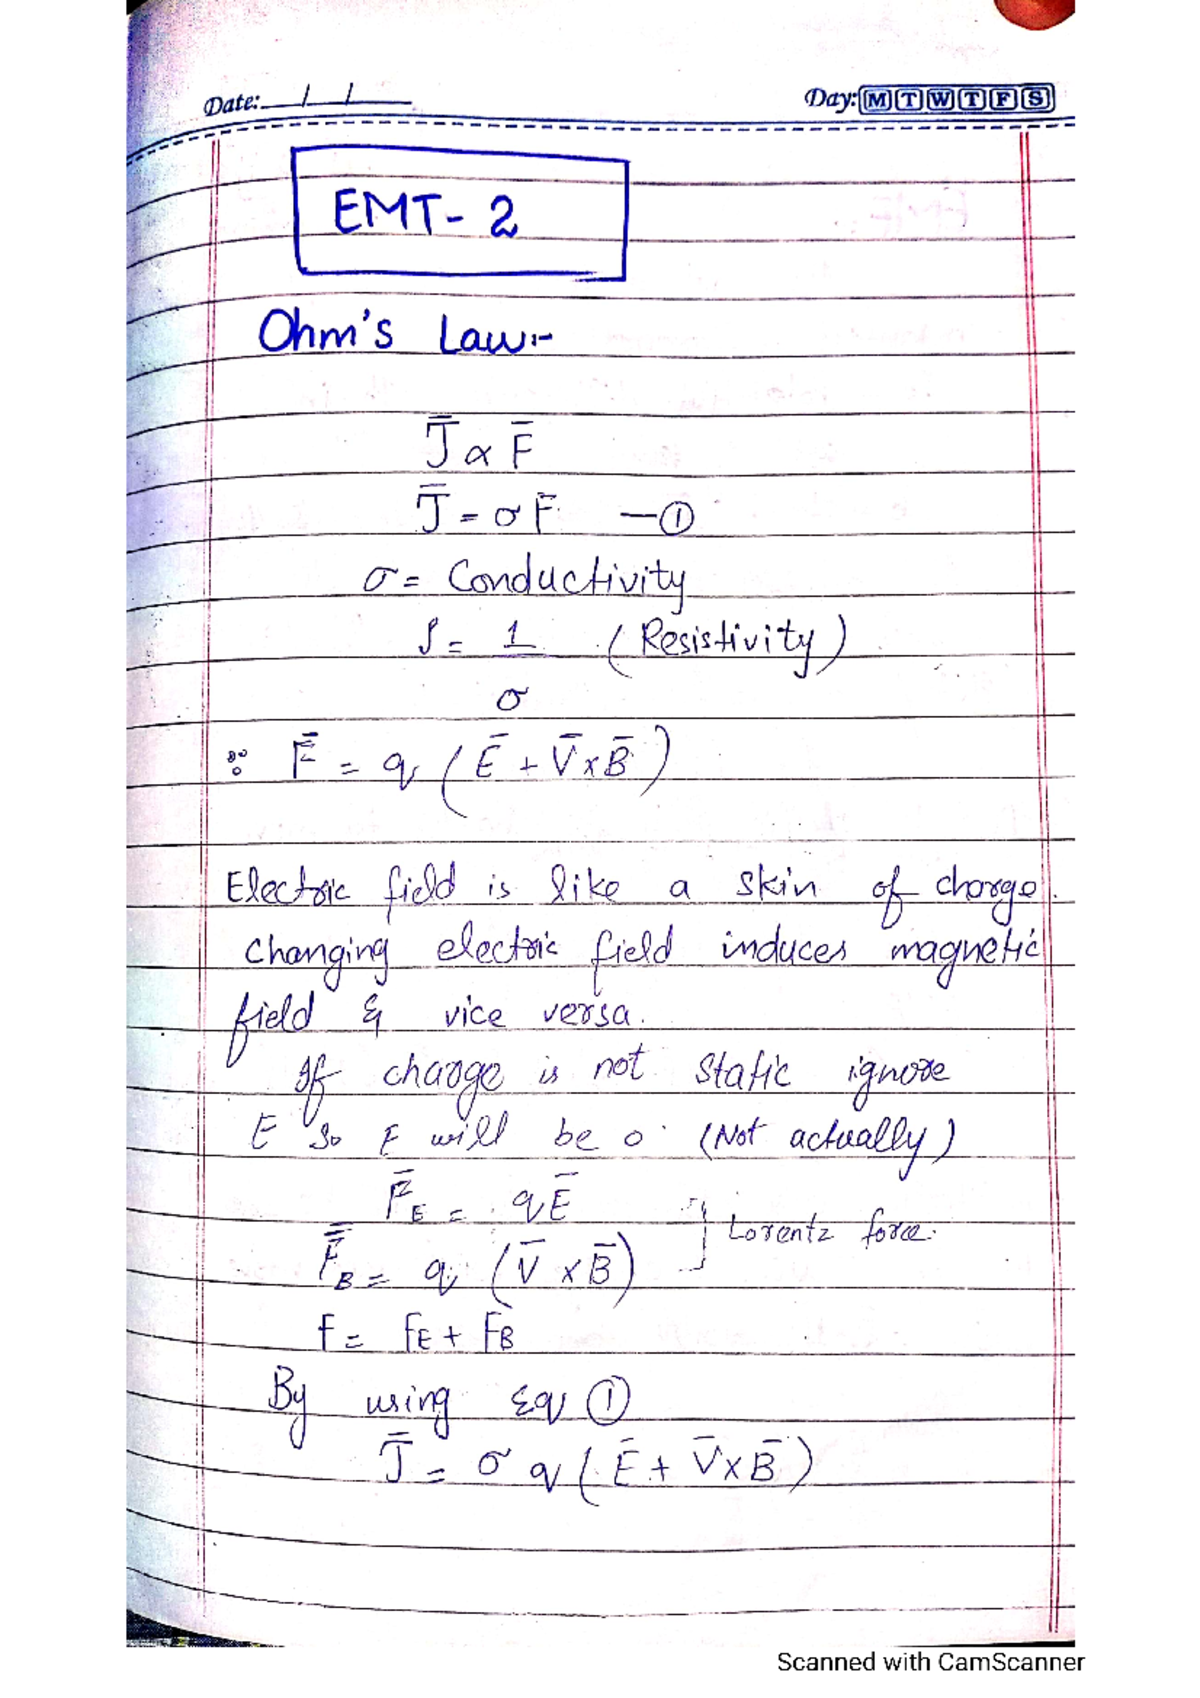 Date: / /
Day: M T W T F S
EMT- 2
Ohm's Law:-
J̄ ∝ F̄
J̄ = σF̄ —①
σ = Conductivity
ρ = 1 (Resistivity)
σ
∵ F̄ = q (Ē + V̄ × B̄)
Electric field is like a skin of charge.
Changing electric field induces magnetic
field & vice versa.
If charge is not static ignore
E so F will be 0. (Not actually)
F̄E = qĒ
Lorentz force.
F̄B = q (V̄ × B̄)
f = fE + FB
By using Eq ①
J̄ = σ q (Ē + V̄ × B̄)
Scanned with CamScanner